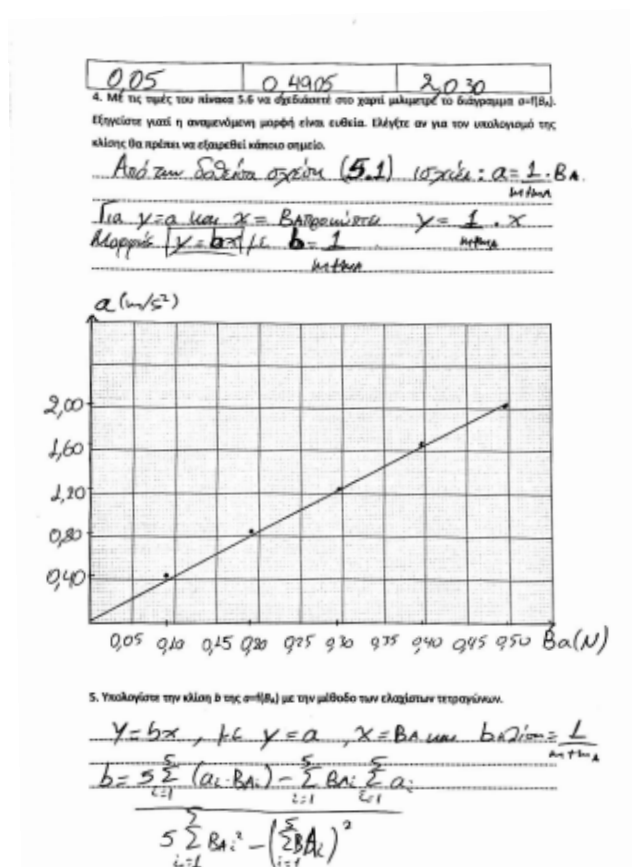 0,05 0,4905 2,030
4. Με τις τιμές του πίνακα 5.6 να σχεδιάσετε στο χαρτί μιλιμετρέ το διάγραμμα α=f(Bₐ).
Εξηγείστε γιατί η αναμενόμενη μορφή είναι ευθεία. Ελέγξτε αν για τον υπολογισμό της
κλίσης θα πρέπει να εξαιρεθεί κάποιο σημείο.
Από την δοθείσα σχέση (5.1) ισχύει: a = 1/(m+mA) . BA
Για y=a και x= BA προκύπτει y= 1/(m+mA) . x
Μορφής y = bx με b= 1/(m+mA)
a (m/s²)
2,00
1,60
1,20
0,80
0,40
0,05 0,10 0,15 0,20 0,25 0,30 0,35 0,40 0,45 0,50 Ba(N)
5. Υπολογίστε την κλίση b της α=f(Bₐ) με την μέθοδο των ελαχίστων τετραγώνων.
Y=bx , με y=a , x=BA και b κλίση= 1/(m+mA)
b= 5 5Σi=1 (ai·BAi) − 5Σi=1 BAi 5Σi=1 ai
5 Σi=1 BAi² − (5Σi=1 BAi)²